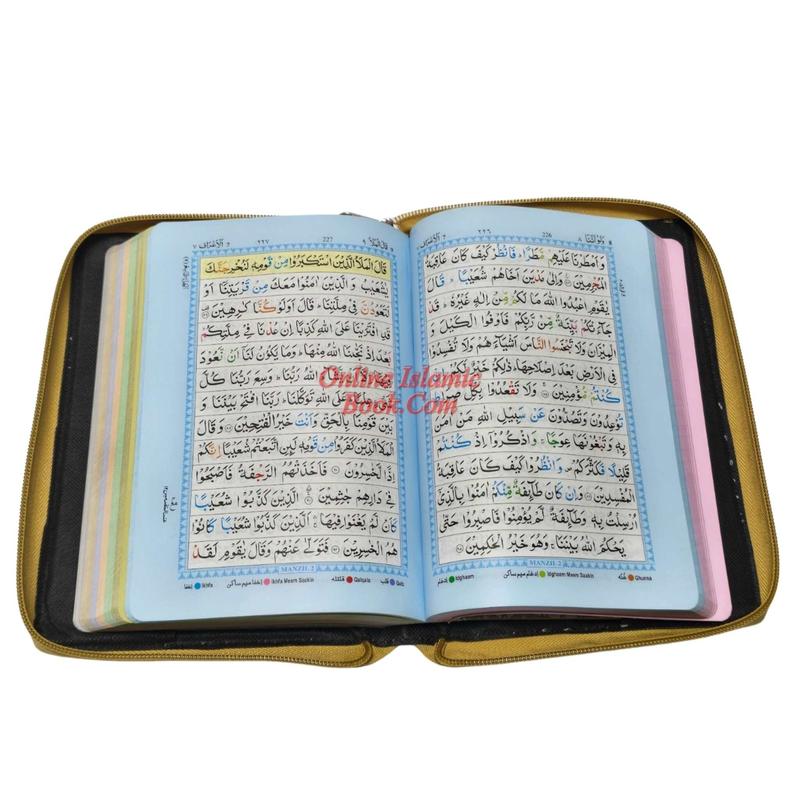 وَلَوْ اَنَّنَا ٨
226
٢٢٦
اَلْاَعْرَاف ٧
وَ اَمْطَرْنَا عَلَيْهِمْ مَّطَرًا ؕ فَانْظُرْ كَيْفَ كَانَ عَاقِبَةُ
الْمُجْرِمِيْنَ وَ اِلٰى مَدْيَنَ اَخَاهُمْ شُعَيْبًا ؕ قَالَ
يٰقَوْمِ اعْبُدُوا اللّٰهَ مَا لَكُمْ مِّنْ اِلٰهٍ غَيْرُهٗ ؕ قَدْ
جَآءَتْكُمْ بَيِّنَةٌ مِّنْ رَّبِّكُمْ فَاَوْفُوا الْكَيْلَ وَ
الْمِيْزَانَ وَلَا تَبْخَسُوا النَّاسَ اَشْيَآءَهُمْ وَلَا تُفْسِدُوْا
فِي الْاَرْضِ بَعْدَ اِصْلَاحِهَا ؕ ذٰلِكُمْ خَيْرٌ لَّكُمْ
اِنْ كُنْتُمْ مُّؤْمِنِيْنَ وَلَا تَقْعُدُوْا بِكُلِّ صِرَاطٍ
تُوْعِدُوْنَ وَتَصُدُّوْنَ عَنْ سَبِيْلِ اللّٰهِ مَنْ اٰمَنَ
بِهٖ وَتَبْغُوْنَهَا عِوَجًا ۚ وَاذْكُرُوْۤا اِذْ كُنْتُمْ
قَلِيْلًا فَكَثَّرَكُمْ ۪ وَانْظُرُوْا كَيْفَ كَانَ عَاقِبَةُ
الْمُفْسِدِيْنَ وَاِنْ كَانَ طَآئِفَةٌ مِّنْكُمْ اٰمَنُوْا بِالَّذِيْۤ
اُرْسِلْتُ بِهٖ وَطَآئِفَةٌ لَّمْ يُؤْمِنُوْا فَاصْبِرُوْا حَتّٰى
يَحْكُمَ اللّٰهُ بَيْنَنَا ۚ وَهُوَ خَيْرُ الْحٰكِمِيْنَ
MANZIL 2
اِدغام Idghaam
اِدغام میم ساکن Idghaam Meem Saakin
غُنّہ Ghunna
قَالَ الْمَلَاُ ٩
227
٢٢٧
اَلْاَعْرَاف ٧
قَالَ الْمَلَاُ الَّذِيْنَ اسْتَكْبَرُوْا مِنْ قَوْمِهٖ لَنُخْرِجَنَّكَ
يٰشُعَيْبُ وَ الَّذِيْنَ اٰمَنُوْا مَعَكَ مِنْ قَرْيَتِنَاۤ اَوْ
لَتَعُوْدُنَّ فِيْ مِلَّتِنَا ؕ قَالَ اَوَلَوْ كُنَّا كٰرِهِيْنَ
قَدِ افْتَرَيْنَا عَلَى اللّٰهِ كَذِبًا اِنْ عُدْنَا فِيْ مِلَّتِكُمْ
بَعْدَ اِذْ نَجّٰىنَا اللّٰهُ مِنْهَا ؕ وَمَا يَكُوْنُ لَنَاۤ اَنْ نَّعُوْدَ
فِيْهَاۤ اِلَّاۤ اَنْ يَّشَآءَ اللّٰهُ رَبُّنَا ؕ وَسِعَ رَبُّنَا كُلَّ
شَيْءٍ عِلْمًا ؕ عَلَى اللّٰهِ تَوَكَّلْنَا ؕ رَبَّنَا افْتَحْ بَيْنَنَا وَ
بَيْنَ قَوْمِنَا بِالْحَقِّ وَاَنْتَ خَيْرُ الْفٰتِحِيْنَ وَقَالَ
الْمَلَاُ الَّذِيْنَ كَفَرُوْا مِنْ قَوْمِهٖ لَئِنِ اتَّبَعْتُمْ شُعَيْبًا اِنَّكُمْ
اِذًا لَّخٰسِرُوْنَ فَاَخَذَتْهُمُ الرَّجْفَةُ فَاَصْبَحُوْا
فِيْ دَارِهِمْ جٰثِمِيْنَ الَّذِيْنَ كَذَّبُوْا شُعَيْبًا
كَاَنْ لَّمْ يَغْنَوْا فِيْهَا ۚ اَلَّذِيْنَ كَذَّبُوْا شُعَيْبًا كَانُوْا
هُمُ الْخٰسِرِيْنَ فَتَوَلّٰى عَنْهُمْ وَقَالَ يٰقَوْمِ لَقَدْ
MANZIL 2
اِخفا Ikhfa
اِخفا میم ساکن Ikhfa Meem Saakin
قَلقَلہ Qalqala
قَلب Qalb
Online Islamic
Book.Com